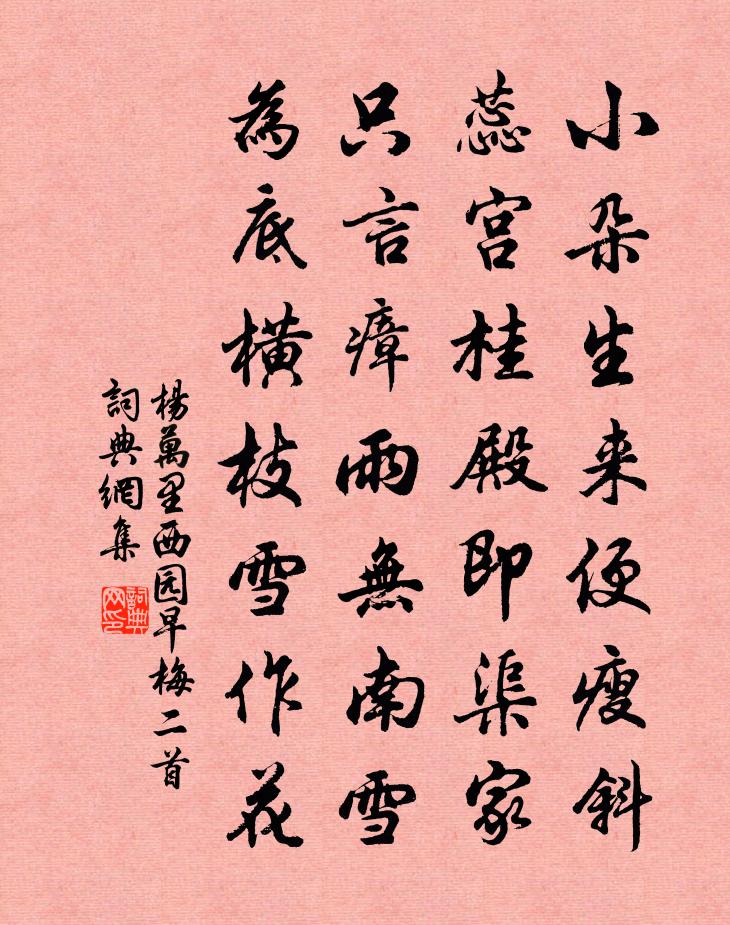 小朵生来便瘦斜
蕊宫桂殿即渠家
只言瘴雨無南雪
為底横枝雪作花
楊萬里西园早梅二首
詞典網集
詞典网印